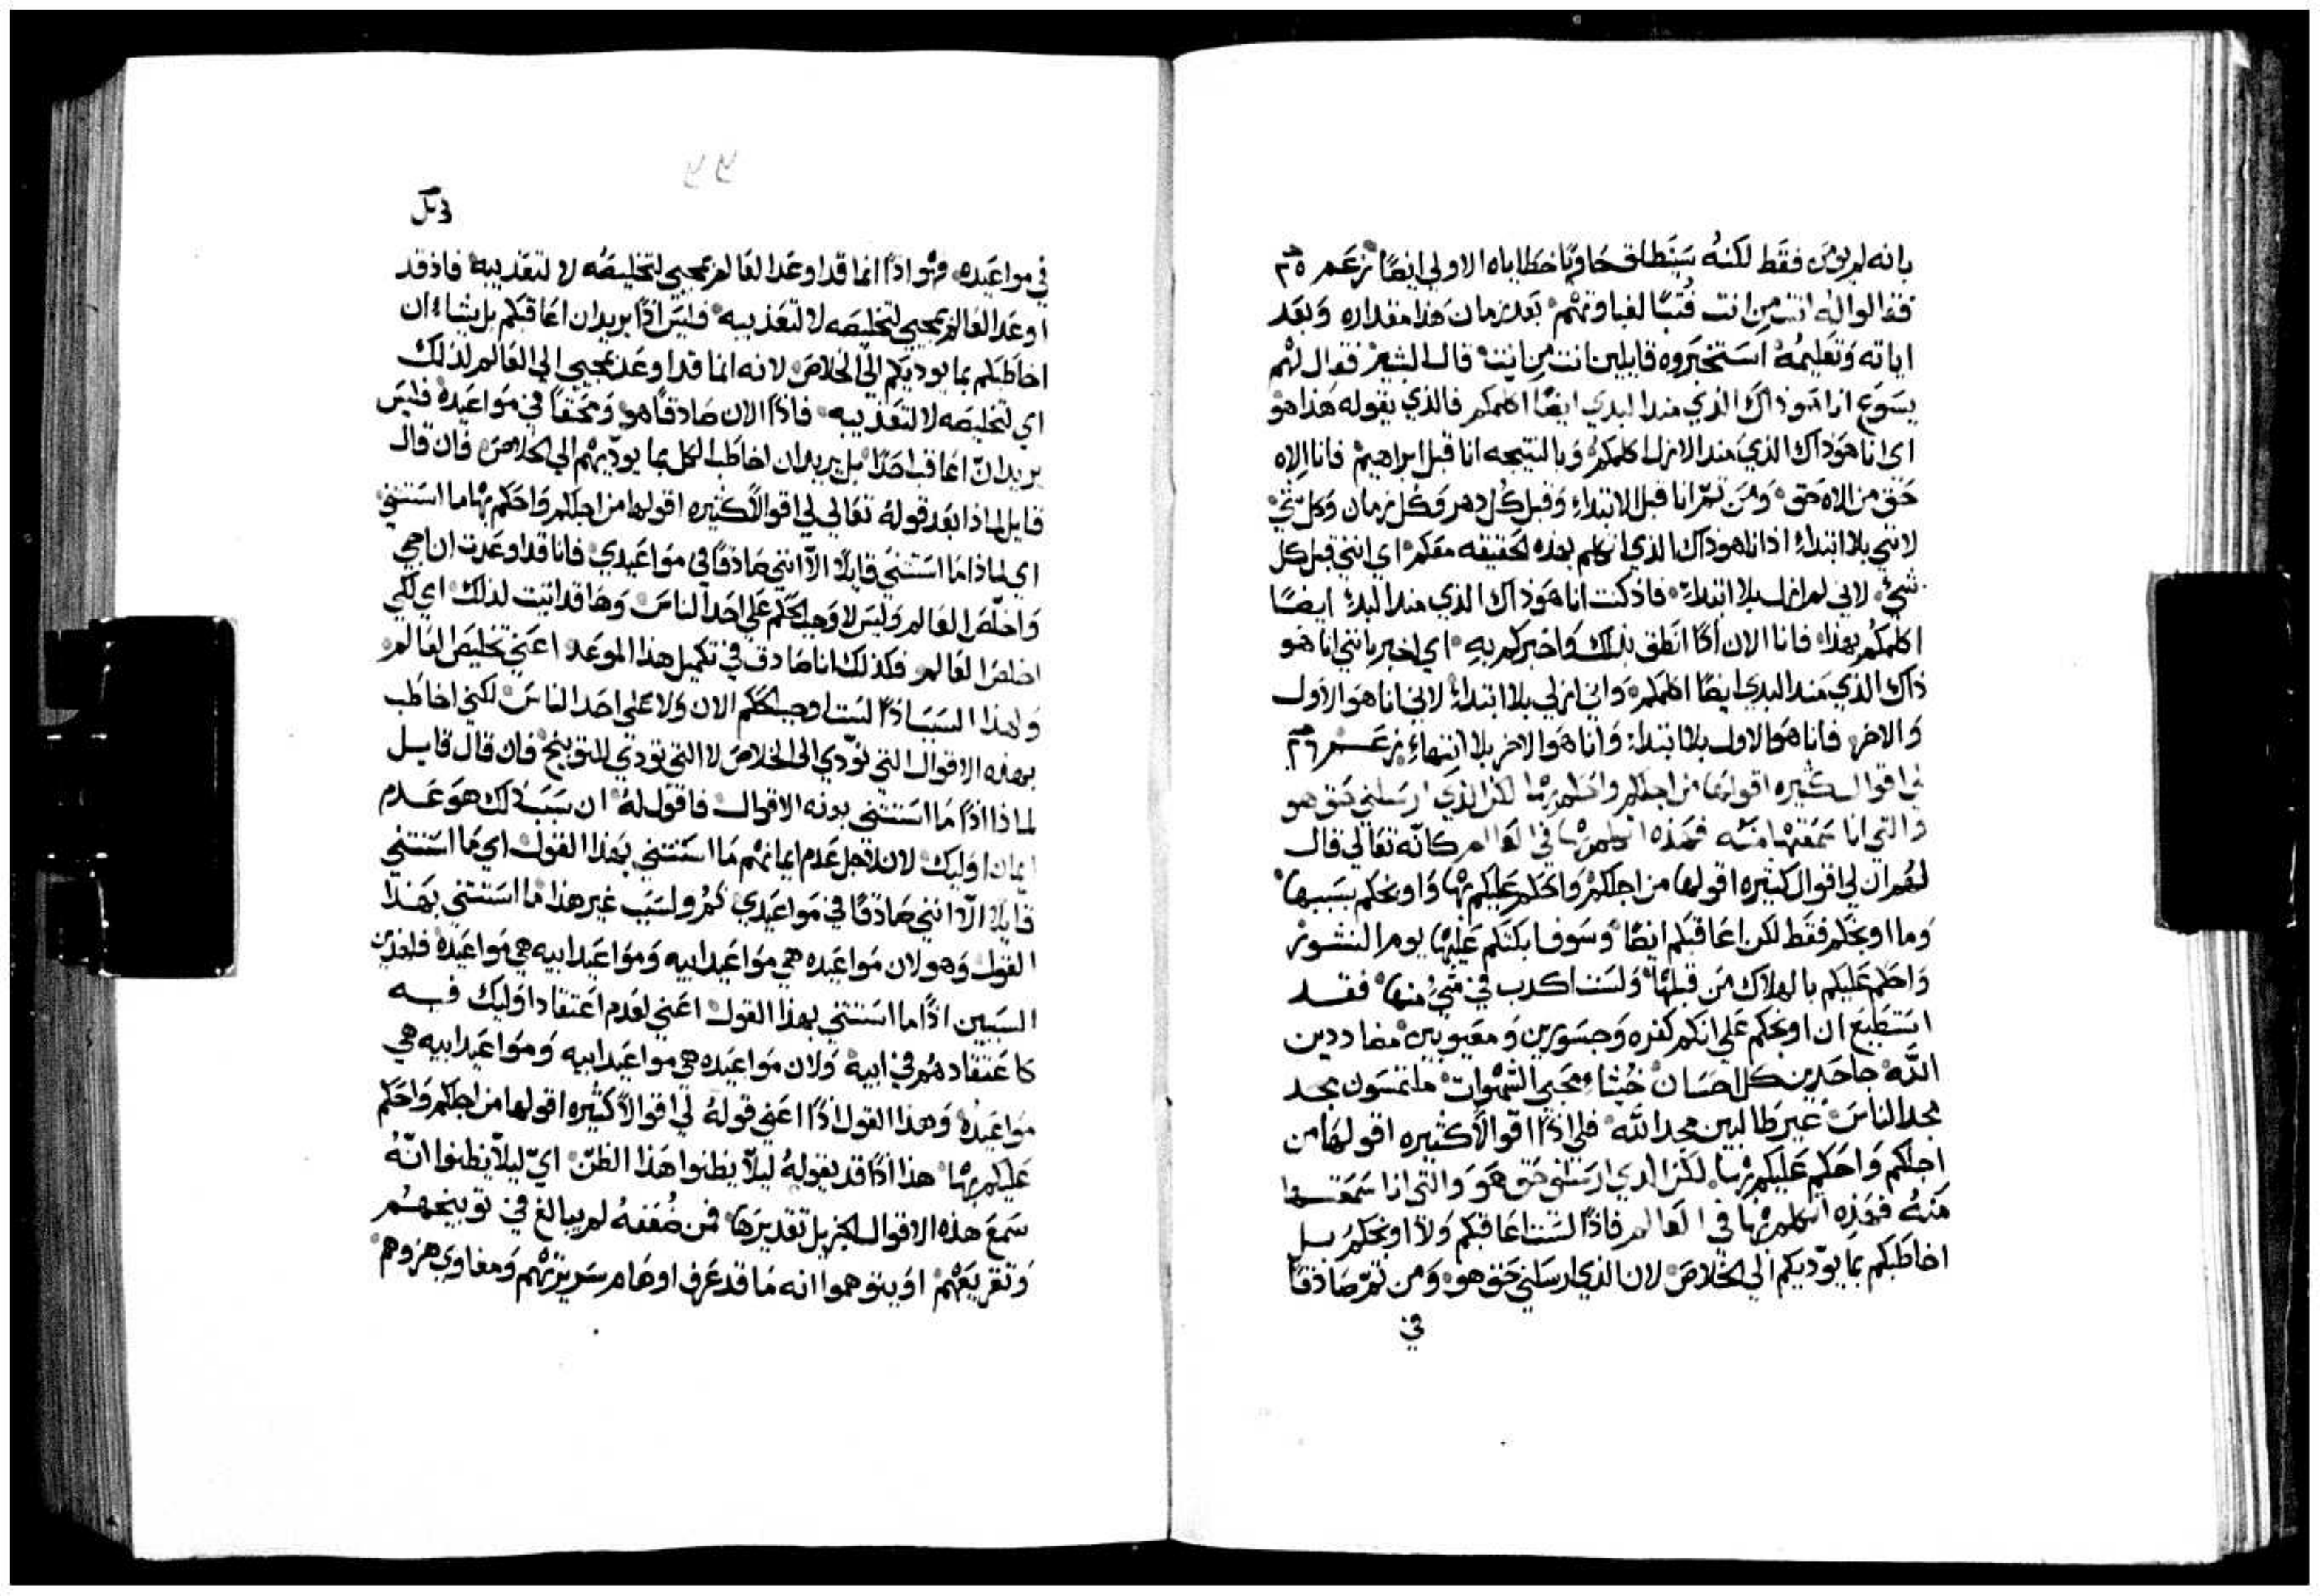 بانه لم يومَن فقَط لكنهُ سَينَطلق حَاويًا خطاياه الاولي ايضًا نزعَم ٢٥
فقالوا له انت مِن انت فُتبًا لغباوتهم بَعد زمان هَذا مقداره وَبعَد
اياته وَتعَليمُهُ اسَتخبَروه قايلين انت مِن انت قال البشير فقال لهُم
يسَوع انا هَو ذاك الذي منذ البدي ايضًا اكلمكم فالذي يقوله هَذا هَو
اي انا هَو ذاك الذي منذ الازل اكلمكم وَبالنتيجه انا قبل ابراهيم فانا الاه
حَق من الاه حَق وَمَن ثمّ انا قبل الابتداء وَقبل كُل دهر وَكُل زمان وَكل شي
لانني بلا ابتداء اذ انا هو ذاك الذي اتكلم بهذه الحقيقه معَكم اي انني قبل كل
شيء لاني لم ازل بلا ابتداء فاذ كنت انا هَو ذاك الذي منذ البدء ايضًا
اكلمكُم بهذا فانا الان اذًا انَطق بذلك وَاخبركم بهِ اي اخبر بانني انا هَو
ذاك الذي مَنذ البدي ايضًا اكلمكم وَاني ازلي بلا ابتداء لاني انا هَو الاول
وَالاخر فانا هَو الاول بلا ابتداء وَانا هَو الاخر بلا انتهاء نزعَم ٢٦
لي اقوال كثيره اقولهَا من اجلكم واحَكم بهَا لكن الذي ارسَلني حَق هو
وَالتي انا سَمَعَتهَا منهُ فهَذه اتكلم بهَا في العَالم كانّه تعَالي قال
لهَم ان لي اقوال كثيره اقولهَا من اجلكم وَاحَكم عَليكم بهَا وَاوبخكم بسَببهَا
وَما اوبخكم فقَط لكن اعَاقبَكم ايضًا وسَوف ابكتكم عَليهَا يوم النشور
وَاحَكم عَليَكم بالهلاك مَن قبلهَا وَلسَت اكدب في شَيءٌ منهَا فقد
اسَتطيَع ان اوبخكم عَلي انكم كفره وَجسَورين وَمعَيوبين مضاددين
اللّه جاحَدين كل احسَان خُبثاء محَبي الشهَوات ملتمسَون مجد
مجد الناسَ غير طَالبين مجد اللّه فلي اذًا اقوالًا كثيره اقولهَا من
اجلكم وَاحَكم عَليكم بهَا لكن الذي ارسَلني حَق هَو وَالتي انا سَمعَتهَا
مَنهُ فهَذِه اتكلم بهَا في العَالم فاذًا لسَت اعَاقبكم وَلا اوبخكم بل
اخاطَبكم بما يودّيكم الي الخلاصَ لان الذي ارسَلني حَق هو وَمن ثمّ صَادقًا
في
في مواعَيده وَهَو اذًا انما قد اوعَد العَالم بمجيي لتخليصَه لا لتعَذيبه فاذ قد
اوعَد العَالم بمجيي لتخليصَه لا لتعَذيبه فليَسَ اذًا يريد ان اعَاقبَكم بل يشاء ان
اخاطَبَكم بما يوديَكم الي الخلاصَ لانه انما قد اوعَد بمجيي الي العَالم لذلك
اي لتخليصَه لا لتعَذيبه فاذًا الان صَادقًا هو وَمحَقًا في مَواعَيده فليَسَ
يريد انّ اعَاقب احَدًا بل يريد ان اخاطَب الكل بما يودّيهُم الي الخلاصَ فان قال
قايل لماذا بعَد قولهُ تعَالي لي اقوالًا كثيره اقولهَا من اجلكم وَاحَكم بهَا ما اسَتثني
اي لماذا مَا اسَتثني قايلًا الّا انني صَادقًا في مَواعَيدي فانا قد اوعَدت ان اجي
وَاخلّصَ العَالم وَليَسَ لاوجب الحكَم عَلي احَد الناسَ وَهَا قد اتيت لذلك اي لكي
اخلصَ العَالم فكذلك انا صَادق في تكميل هذا الموعَد اعَني تخليصَ العَالم
وَلهذا السَبَب اذًا لسَت اوجب الحكَم الان وَلا عَلي احَد الناسَ لكني اخاطَب
بهَذه الاقوال التي تودّي الي الخلاصَ لا التي تودي للتوبيخ فان قال قايل
لماذا اذًا مَا اسَتثني بهذه الاقوال فاقول لهُ ان سَبَب ذلك هَو عَدم
ايمان اوليك لان لاجل عَدم ايمانهم مَا اسَتثني بهَذا القول اي مَا اسَتثني
قايلًا الّا انني صَادقًا في مَواعَيدي ثمُ ولسَبب غير هذا مَا اسَتثني بهَذا
القول وَهو لان مَواعَيده هي مَواعَيد ابيه وَمَواعَيد ابيه هي مَواعَيده فلهذين
السَببين اذًا ما اسَتثني بهذا القول اعَني لعَدم اعَتقاد اوَليك فيه
كاعَتقادهُم في ابيه وَلان مَواعَيده هي مَواعَيد ابيه وَمَواعَيد ابيه هي
مَواعَيدهُ وَهَذا القول اذًا اعَني قولهُ لي اقوالًا كثيره اقولهَا من اجلكم وَاحَكم
عَليكم بهَا هذا اذًا قد يقولهُ ليلّا يظنوا هَذا الظَنّ ايّ ليلّا يظنوا انّهُ
سَمَعَ هَذه الاقوال الجزيل تقديرَهَا فمن ضُعَفهُ لم يبالغ في توبيخهُم
وَتقريعَهُم اوَ يتوهموا انه مَا قد عَرف اوهَام سَريرتهُم وَمغاوي هزوهم